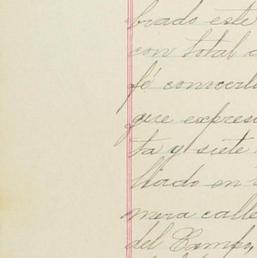 brado este
con total
fé conocerlo
que expres
ta y siete
lliado en
mera calle
del Campo,